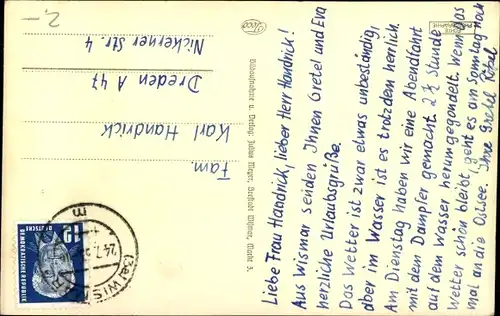 Liebe Frau Handrick, lieber Herr Handrick!
Aus Wismar senden Ihnen Gretel und Eva
herzliche Urlaubsgrüße.
Das Wetter ist zwar etwas unbeständig,
aber im Wasser ist es trotzdem herrlich.
Am Dienstag haben wir eine Abendfahrt
mit dem Dampfer gemacht. 2½ Stunde
auf dem Wasser herumgegondelt. Wenn das
Wetter schön bleibt, geht es am Sonntag noch
mal an die Ostsee. Ihre Gretel
Bildaufnahme u. Verlag: Julius Meyer, Seestadt Wismar, Markt 3.
Fam.
Karl Handrick
Dresden A 47
Nickerner Str. 4
2,-
12
DEUTSCHE
DEMOKRATISCHE REPUBLIK
WISMAR
24.7.
m
ECHTE
PHOTOGRAPHIE